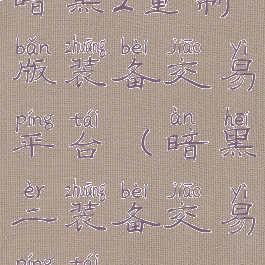 暗黑2重制
bǎn zhuāng bèi jiāo yì
版装备交易
píng tái àn hēi
平台（暗黑
èr zhuāng bèi jiāo yì
二装备交易
píng tái